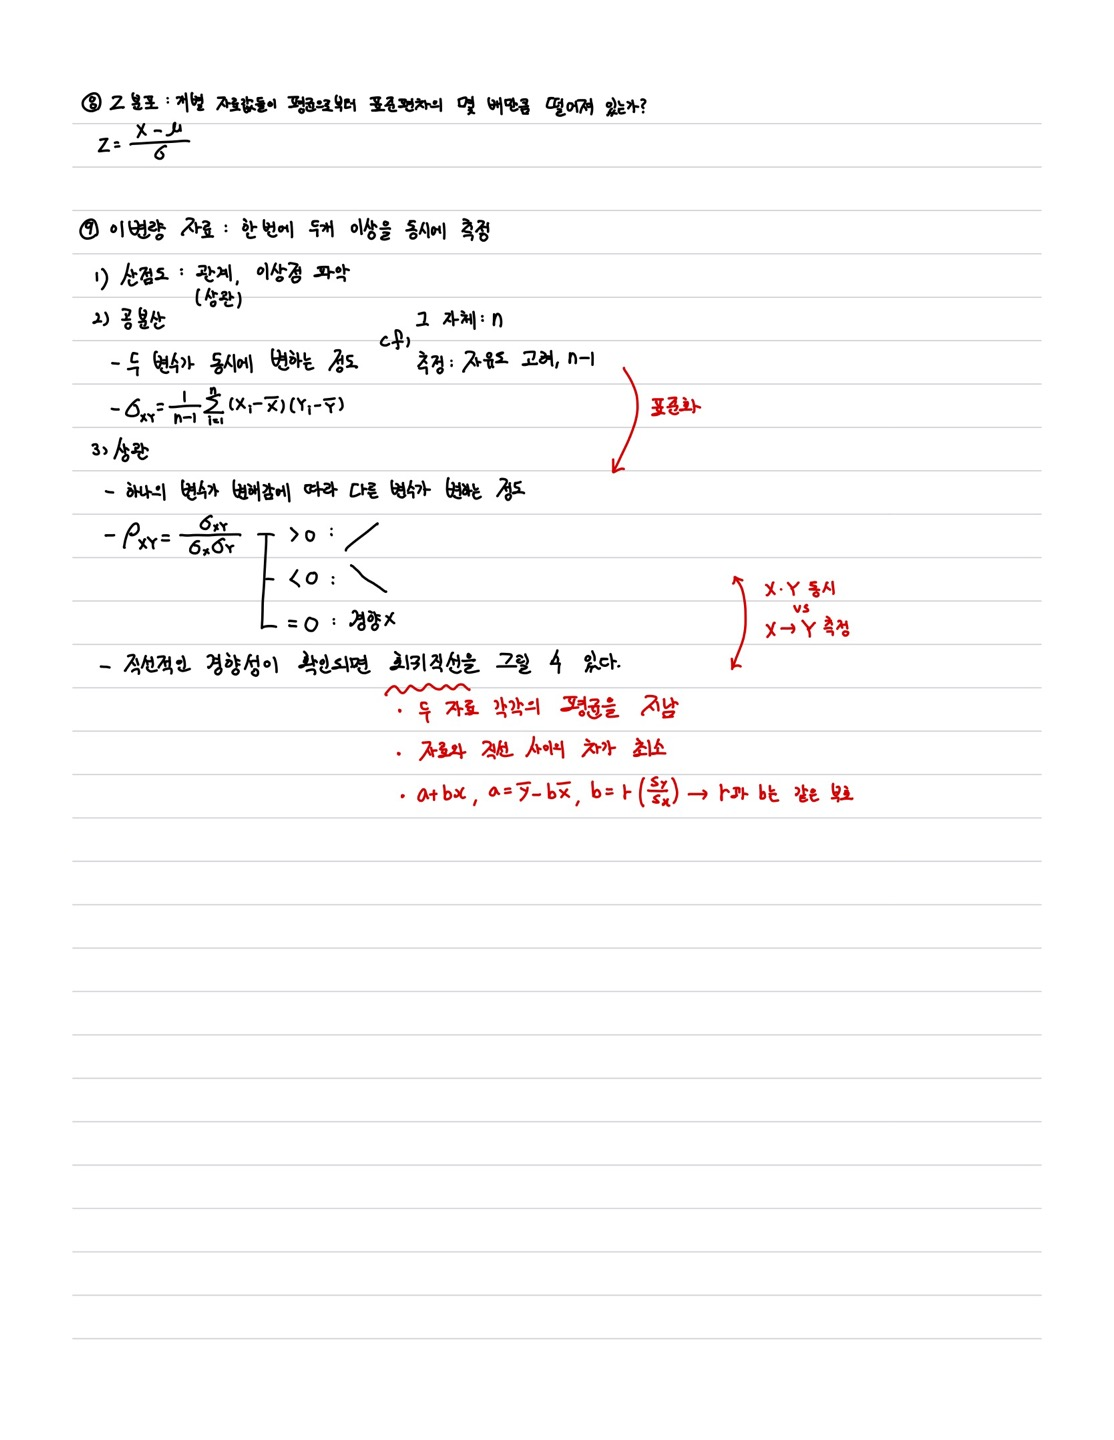 ⑧ Z 분포 : 개별 자료값들이 평균으로부터 표준편차의 몇 배만큼 떨어져 있는가?
Z = (X - μ) / σ
⑨ 이변량 자료 : 한번에 두개 이상을 동시에 측정
1) 산점도 : 관계, 이상점 파악
(상관)
2) 공분산
cf) 그 자체 : n
측정 : 자유도 고려, n-1
- 두 변수가 동시에 변하는 정도
- σ_XY = 1/(n-1) Σ_{i=1}^{n} (X_i - X̅)(Y_i - Y̅)
표준화
3) 상관
- 하나의 변수가 변해감에 따라 다른 변수가 변하는 정도
- ρ_XY = σ_XY / (σ_X σ_Y)
> 0 : ／
< 0 : ＼
= 0 : 경향X
X·Y 동시
vs
X → Y 측정
- 직선적인 경향성이 확인되면 회귀직선을 그릴 수 있다.
· 두 자료 각각의 평균을 지남
· 자료와 직선 사이의 차가 최소
· a+bx, a = y̅ - bx̅, b = r (Sy/Sx) → r과 b는 같은 부호